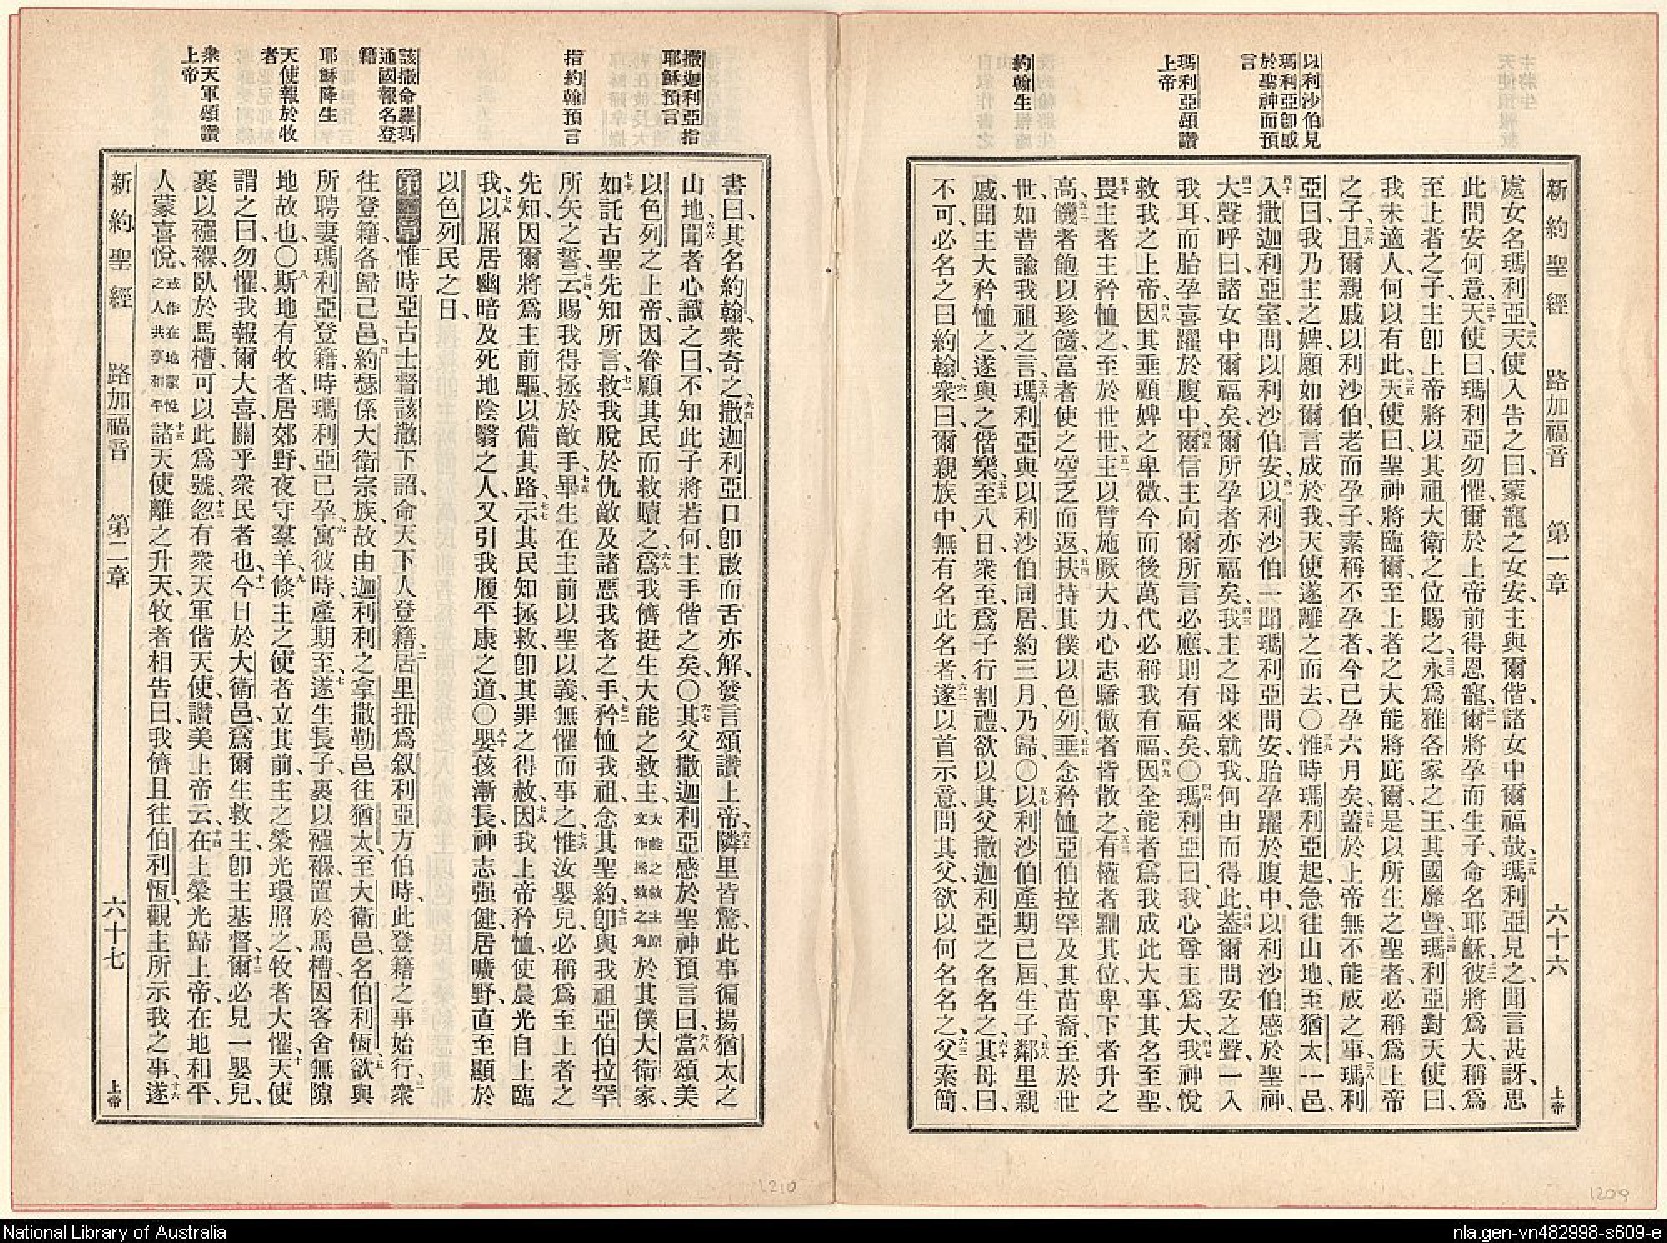 以利沙伯見
瑪利亞卽感
於聖神而預
言
瑪利亞頌讚
上帝
約翰生
新約聖經 路加福音 第一章 六十六 上帝
處女名瑪利亞天使入告之曰蒙寵之女安主與爾偕諸女中爾福哉瑪利亞見之聞言甚訝思
此問安何意天使曰瑪利亞勿懼爾於上帝前得恩寵爾將孕而生子命名耶穌彼將爲大稱爲
至上者之子主卽上帝將以其祖大衛之位賜之永爲雅各家之王其國靡曁瑪利亞對天使曰
我未適人何以有此天使曰聖神將臨爾至上者之大能將庇爾是以所生之聖者必稱爲上帝
之子且爾親戚以利沙伯老而孕子素稱不孕者今已孕六月矣蓋於上帝無不能成之事瑪利
亞曰我乃主之婢願如爾言成於我天使遂離之而去〇惟時瑪利亞起急往山地至猶太一邑
入撒迦利亞室問以利沙伯安以利沙伯一聞瑪利亞問安胎孕躍於腹中以利沙伯感於聖神
大聲呼曰諸女中爾福矣爾所孕者亦福矣我主之母來就我何由而得此蓋爾問安之聲一入
我耳而胎孕喜躍於腹中爾信主向爾所言必應則有福矣〇瑪利亞曰我心尊主爲大我神悅
救我之上帝因其垂顧婢之卑微今而後萬代必稱我有福因全能者爲我成此大事其名至聖
畏主者主矜恤之至於世世主以臂施厥大力心志驕傲者皆散之有權者黜其位卑下者升之
高饑者飽以珍饈富者使之空乏而返扶持其僕以色列垂念矜恤亞伯拉罕及其苗裔至於世
世如昔諭我祖之言瑪利亞與以利沙伯同居約三月乃歸〇以利沙伯產期已屆生子鄰里親
戚聞主大矜恤之遂與之偕樂至八日衆至爲子行割禮欲以其父撒迦利亞之名名之其母曰
不可必名之曰約翰衆曰爾親族中無有名此名者遂以首示意問其父欲以何名名之父索簡
撒迦利亞指
耶穌預言
指約翰預言
該撒命羅瑪
通國報名登
籍
耶穌降生
天使報於牧
者
衆天軍頌讚
上帝
書曰其名約翰衆奇之撒迦利亞口卽啟而舌亦解發言頌讚上帝隣里皆驚此事徧揚猶太之
山地聞者心識之曰不知此子將若何主手偕之矣〇其父撒迦利亞感於聖神預言曰當頌美
以色列之上帝因眷顧其民而救贖之爲我儕挺生大能之救主大能之救主原文作拯救之角於其僕大衛家
如託古聖先知所言救我脫於仇敵及諸惡我者之手矜恤我祖念其聖約卽與我祖亞伯拉罕
所矢之誓云賜我得拯於敵手畢生在主前以聖以義無懼而事之惟汝嬰兒必稱爲至上者之
先知因爾將爲主前驅以備其路示其民知拯救卽其罪之得赦因我上帝矜恤使晨光自上臨
我以照居幽暗及死地陰翳之人又引我履平康之道〇嬰孩漸長神志强健居曠野直至顯於
以色列民之日
第二章惟時亞古士督該撒下詔命天下人登籍居里扭爲叙利亞方伯時此登籍之事始行衆
往登籍各歸己邑約瑟係大衛宗族故由迦利利之拿撒勒邑往猶太至大衛邑名伯利恆欲與
所聘妻瑪利亞登籍時瑪利亞已孕寓彼時產期至遂生長子裹以襁褓置於馬槽因客舍無隙
地故也〇斯地有牧者居郊野夜守羣羊倐主之使者立其前主之榮光環照之牧者大懼天使
謂之曰勿懼我報爾大喜關乎衆民者也今日於大衛邑爲爾生救主卽主基督爾必見一嬰兒
裹以襁褓臥於馬槽可以此爲號忽有衆天軍偕天使讚美上帝云在上榮光歸上帝在地和平
人蒙喜悅或作在地蒙悅之人共享和平諸天使離之升天牧者相告曰我儕且往伯利恆觀主所示我之事遂
新約聖經 路加福音 第二章 六十七 上帝
1210
1209
National Library of Australia
nla.gen-vn482998-s609-e